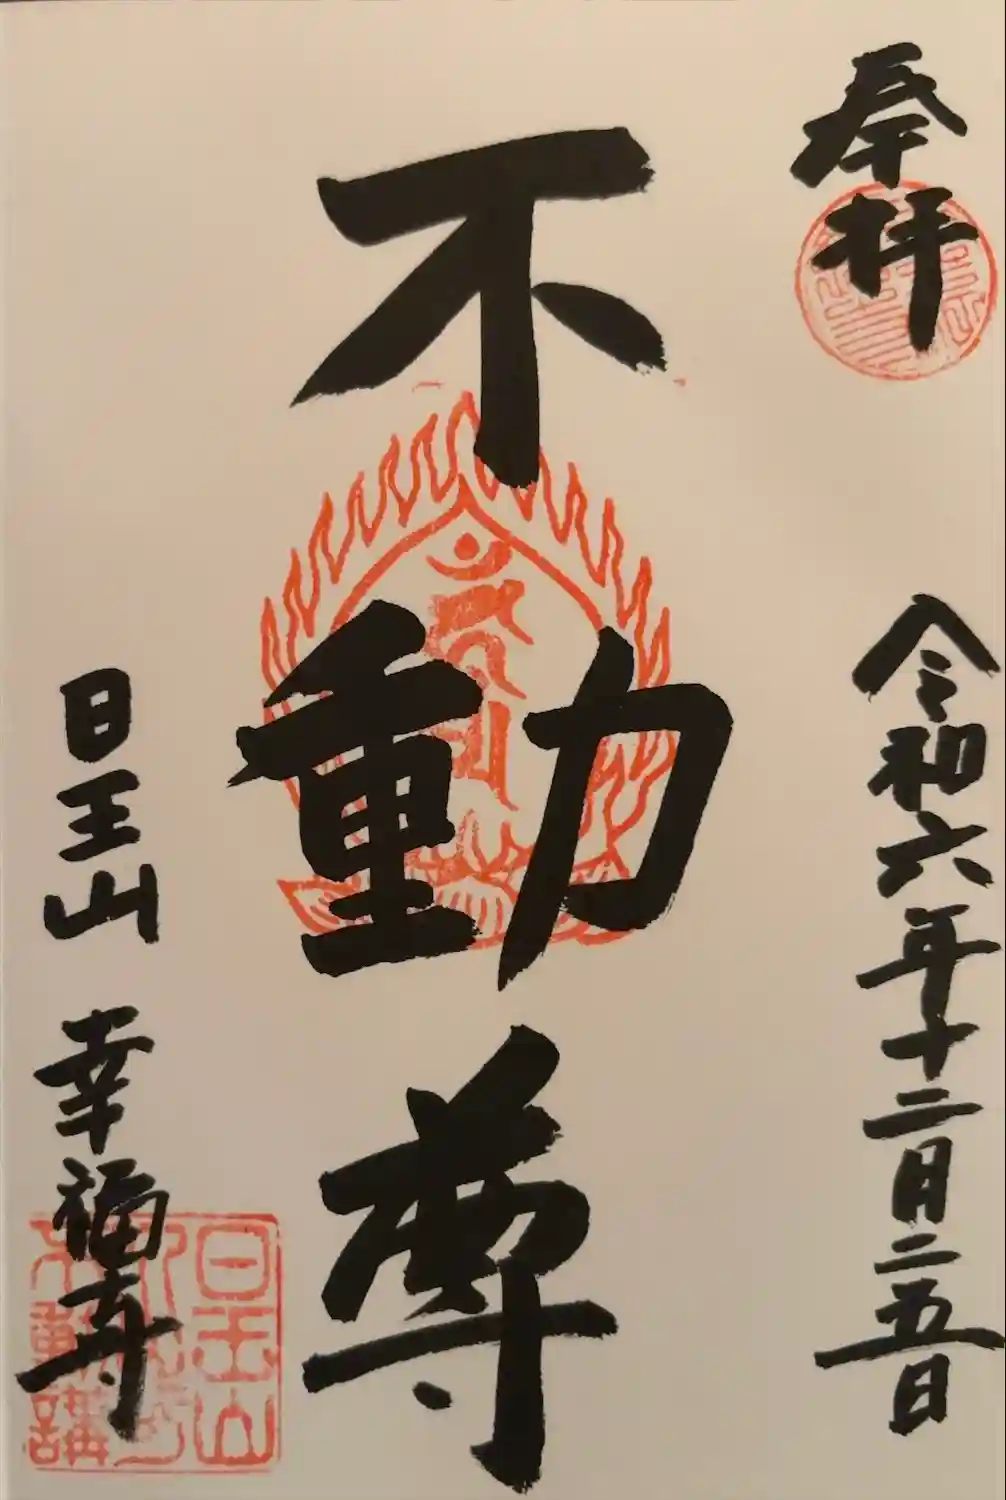 奉拝
令和六年十二月二五日
不動尊
日王山 幸福寺
日王山
不動講